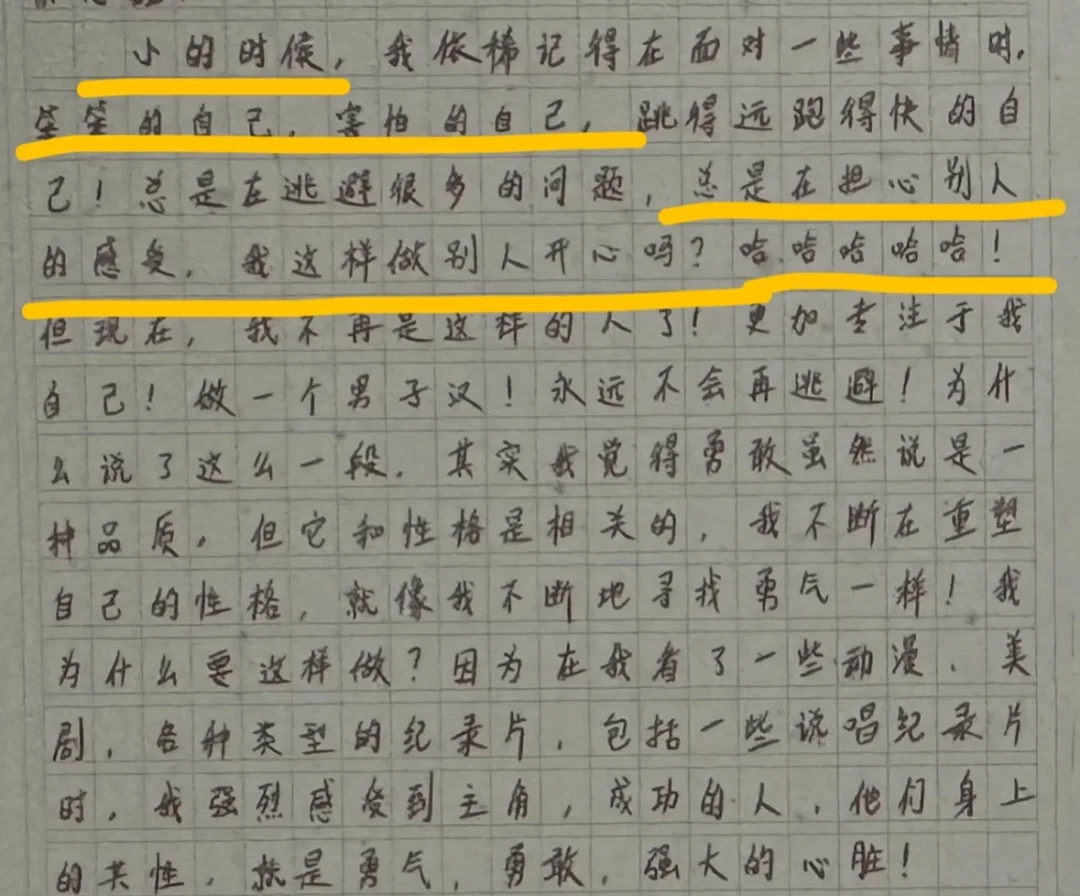 小的时候，我依稀记得在面对一些事情时，
的自己，害怕的自己，跳得远跑得快的自
己！总是在逃避很多的问题，总是在担心别人
的感受，我这样做别人开心吗？哈哈哈哈哈！
但现在，我不再是这样的人了！更加专注于我
自己！做一个男子汉！永远不会再逃避！为什
么说了这么一段．其实我觉得勇敢虽然说是一
种品质，但它和性格是相关的，我不断在重塑
自己的性格，就像我不断地寻找勇气一样！我
为什么要这样做？因为在我看了一些动漫、美
剧，各种类型的纪录片，包括一些说唱纪录片
时，我强烈感受到主角，成功的人，他们身上
的共性，就是勇气，勇敢，强大的心脏！